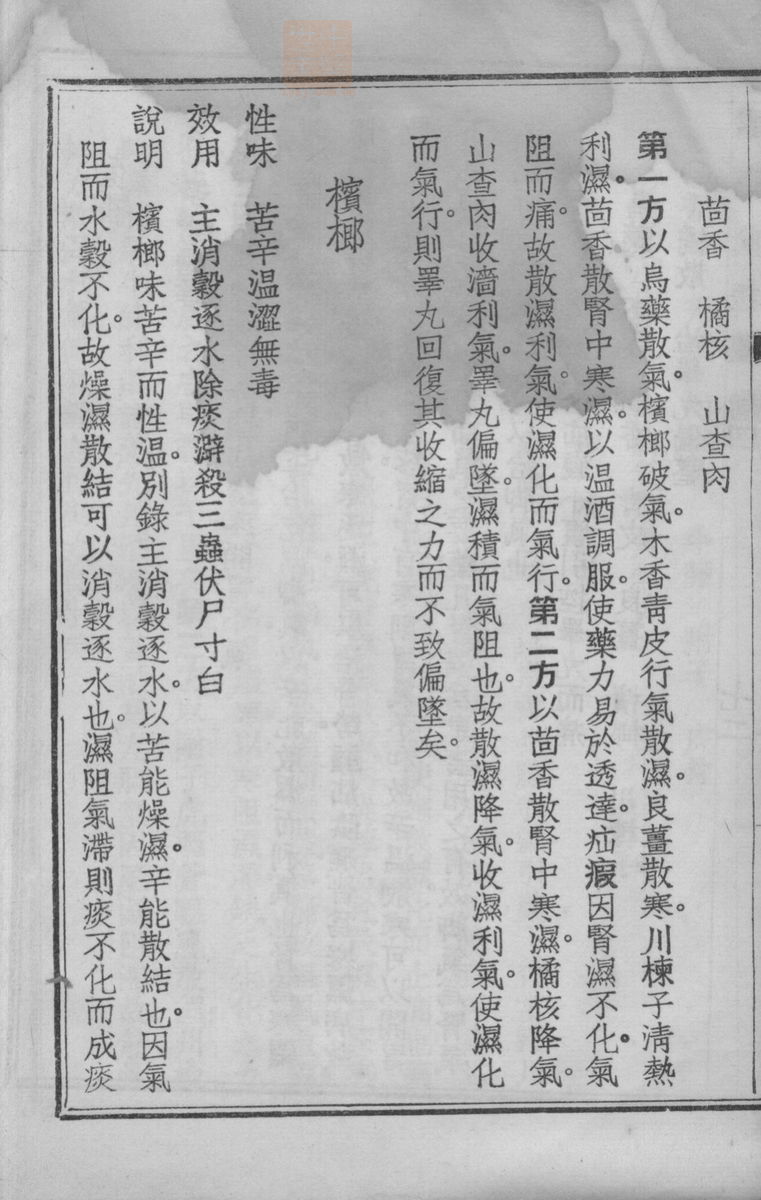 茴香　橘核　山查肉
第一方以烏藥散氣。檳榔破氣。木香靑皮行氣散濕。良薑散寒。川楝子淸熱
利濕。茴香散腎中寒濕。以温酒調服。使藥力易於透達。疝瘕因腎濕不化。氣
阻而痛。故散濕利氣。使濕化而氣行。第二方以茴香散腎中寒濕。橘核降氣。
山查肉收濇利氣。睪丸偏墜。濕積而氣阻也。故散濕降氣。收濕利氣。使濕化
而氣行。則睪丸回復其收縮之力而不致偏墜矣。
檳榔
性味　苦辛温澀無毒
效用　主消穀逐水除痰澼殺三蟲伏尸寸白
說明　檳榔味苦辛而性温。別錄主消穀逐水。以苦能燥濕。辛能散結也。因氣
阻而水穀不化。故燥濕散結可以消穀逐水也。濕阻氣滯則痰不化而成痰